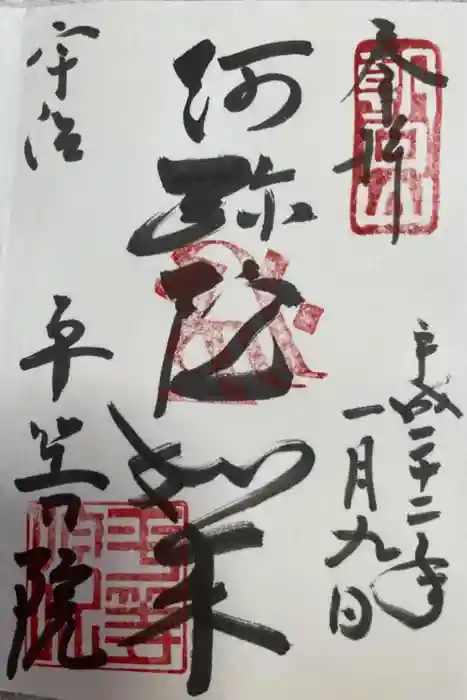 奉拝
平成二十二年
一月九日
阿弥陀如来
宇治
平等院